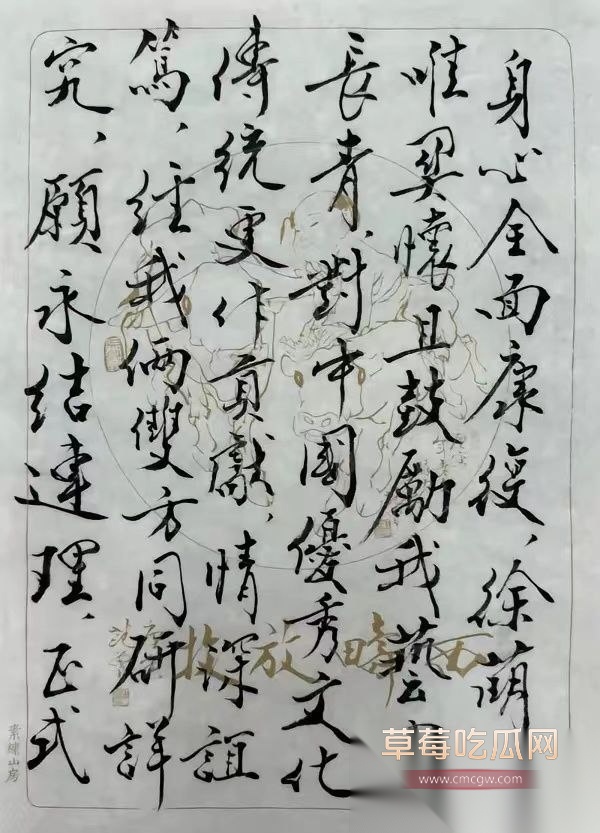 身心全面康復、徐萌
唯 懷且鼓勵我藝
長青、對中國優秀文化
傳統更作貢獻、情深誼
篤、經我倆雙方同研詳
究、願永結連理、正式
疇放牧
山房
草莓吃瓜网
www.cmcgw.com